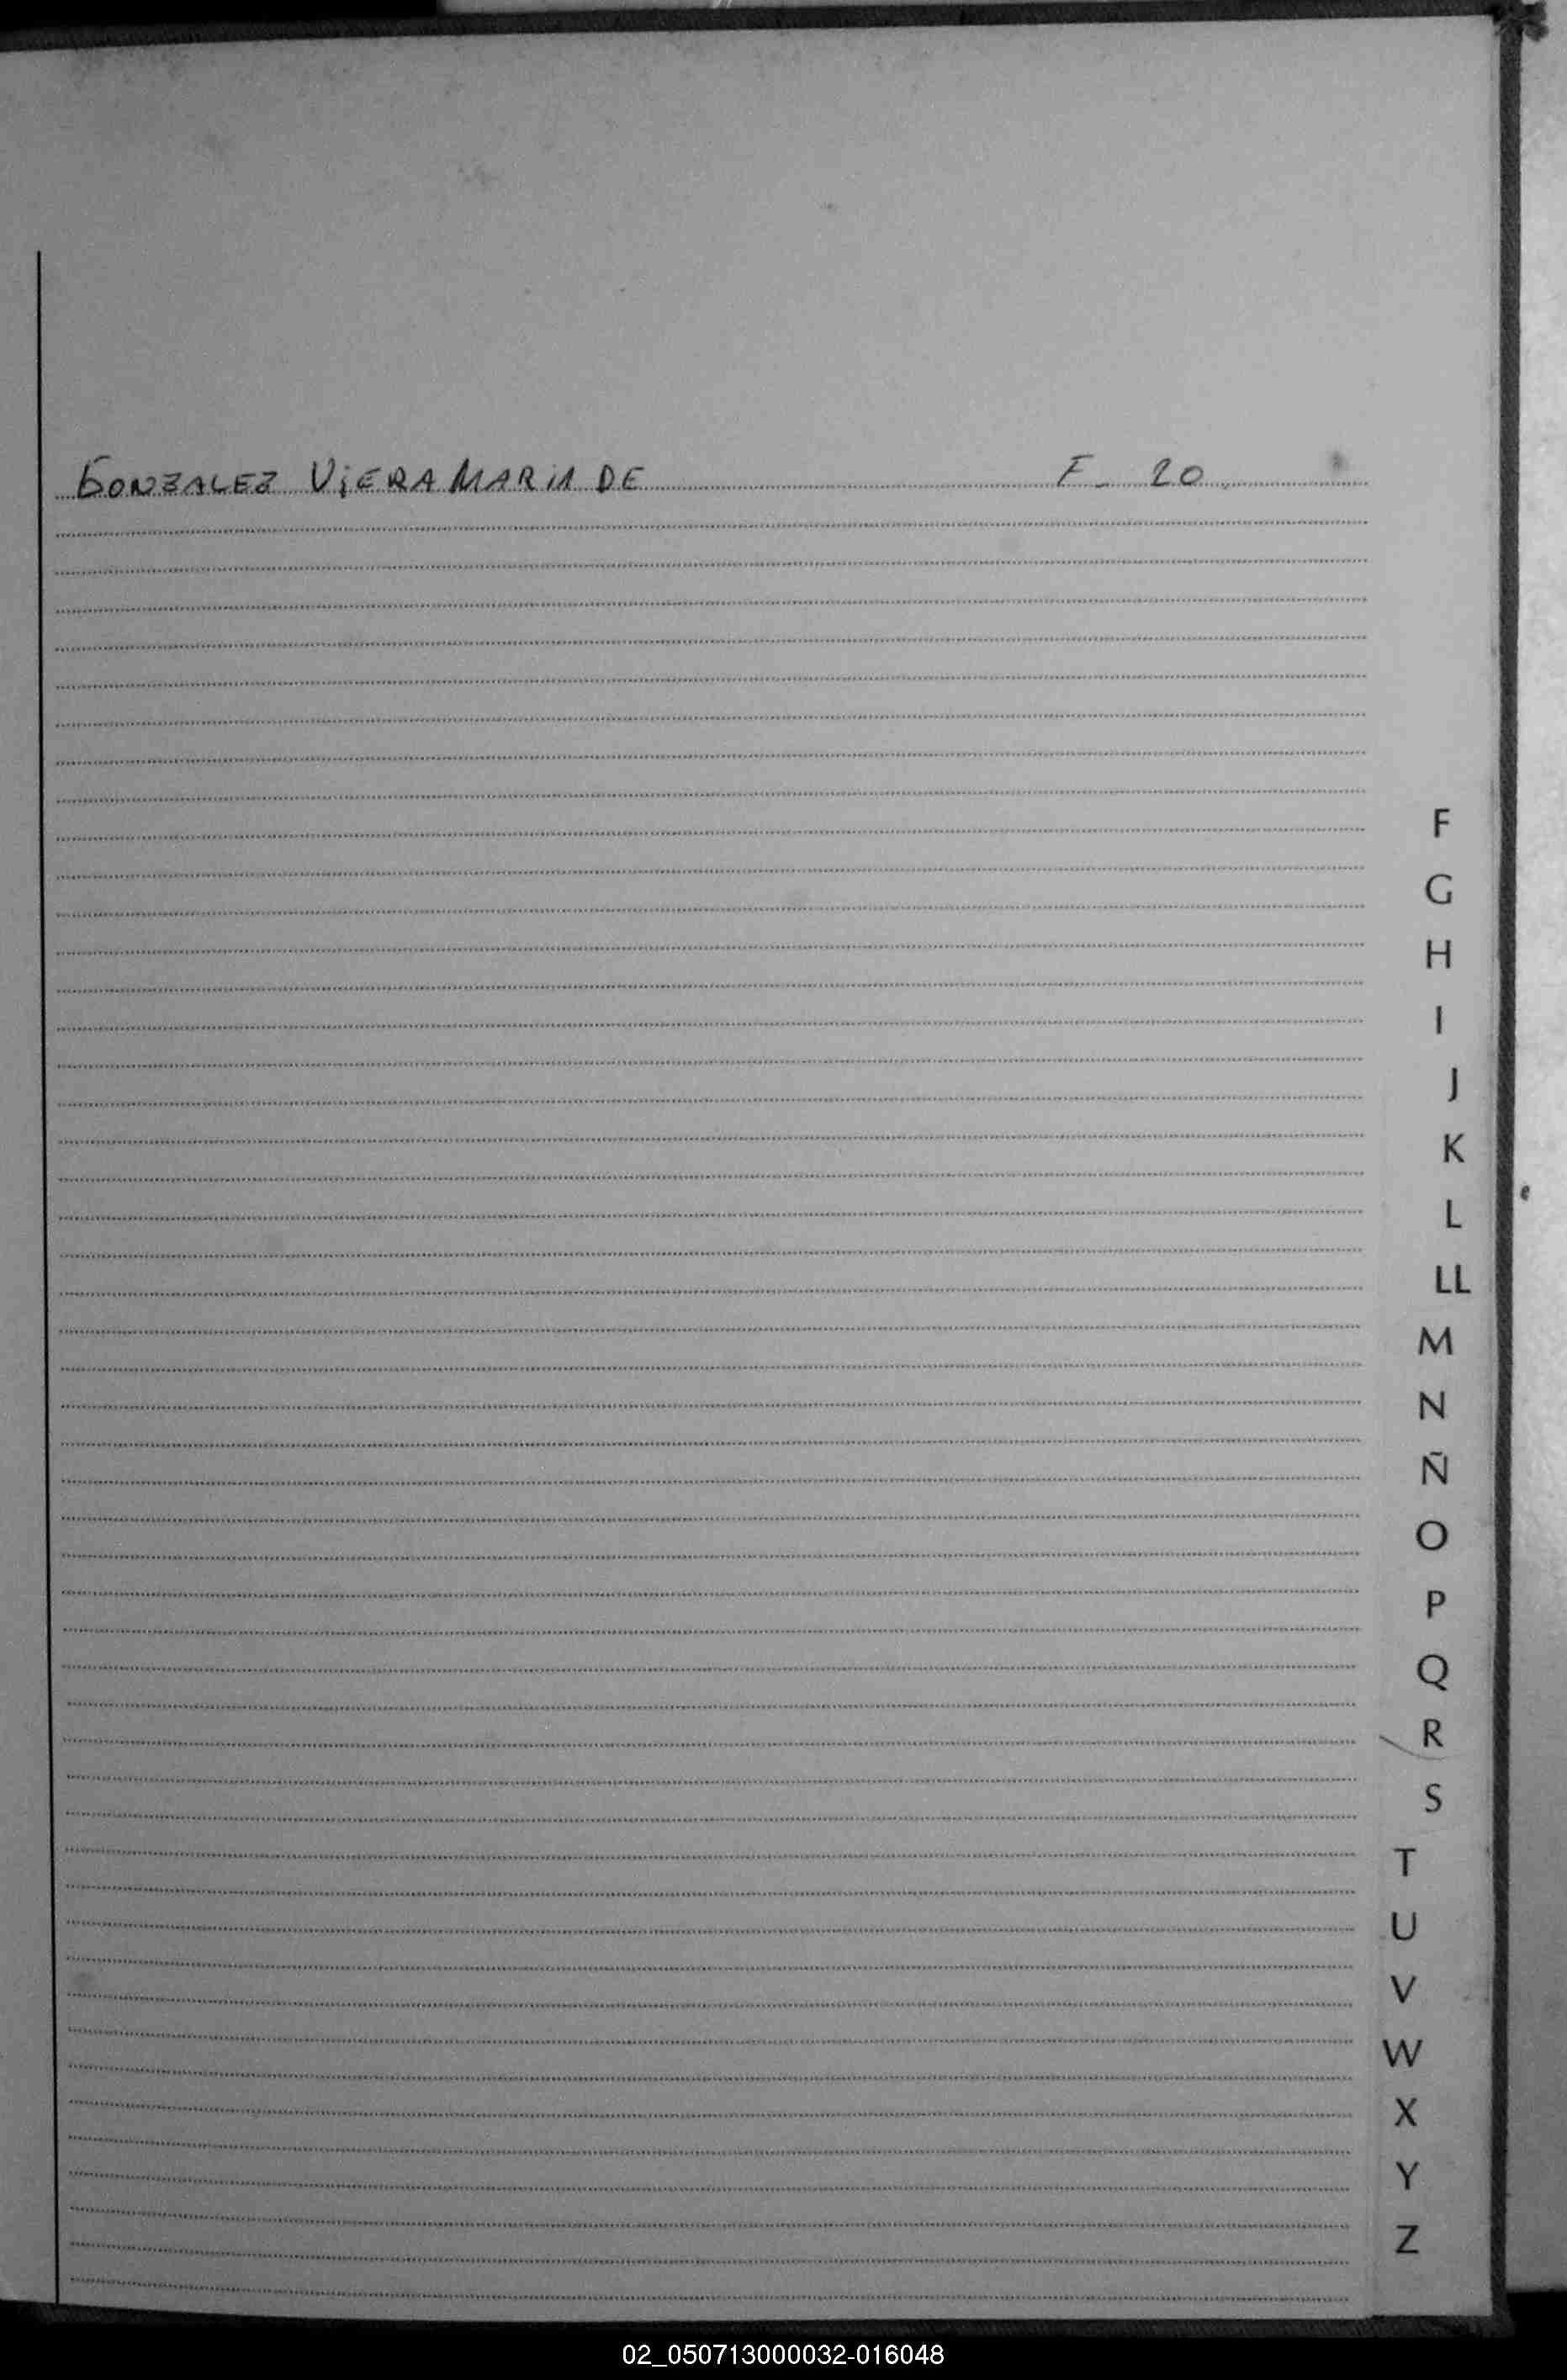 GONZALEZ VIERA MARIA DE F- 20
F
G
H
I
J
K
L
LL
M
N
Ñ
O
P
Q
R
S
T
U
V
W
X
Y
Z
02_050713000032-016048